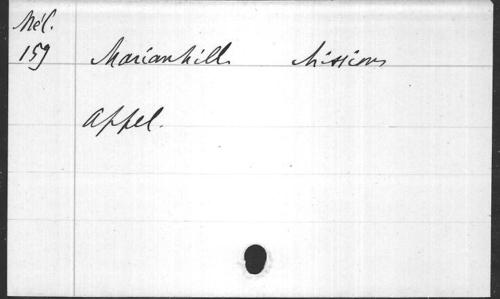 Mél.
159 Marianhill Missions
Appel.